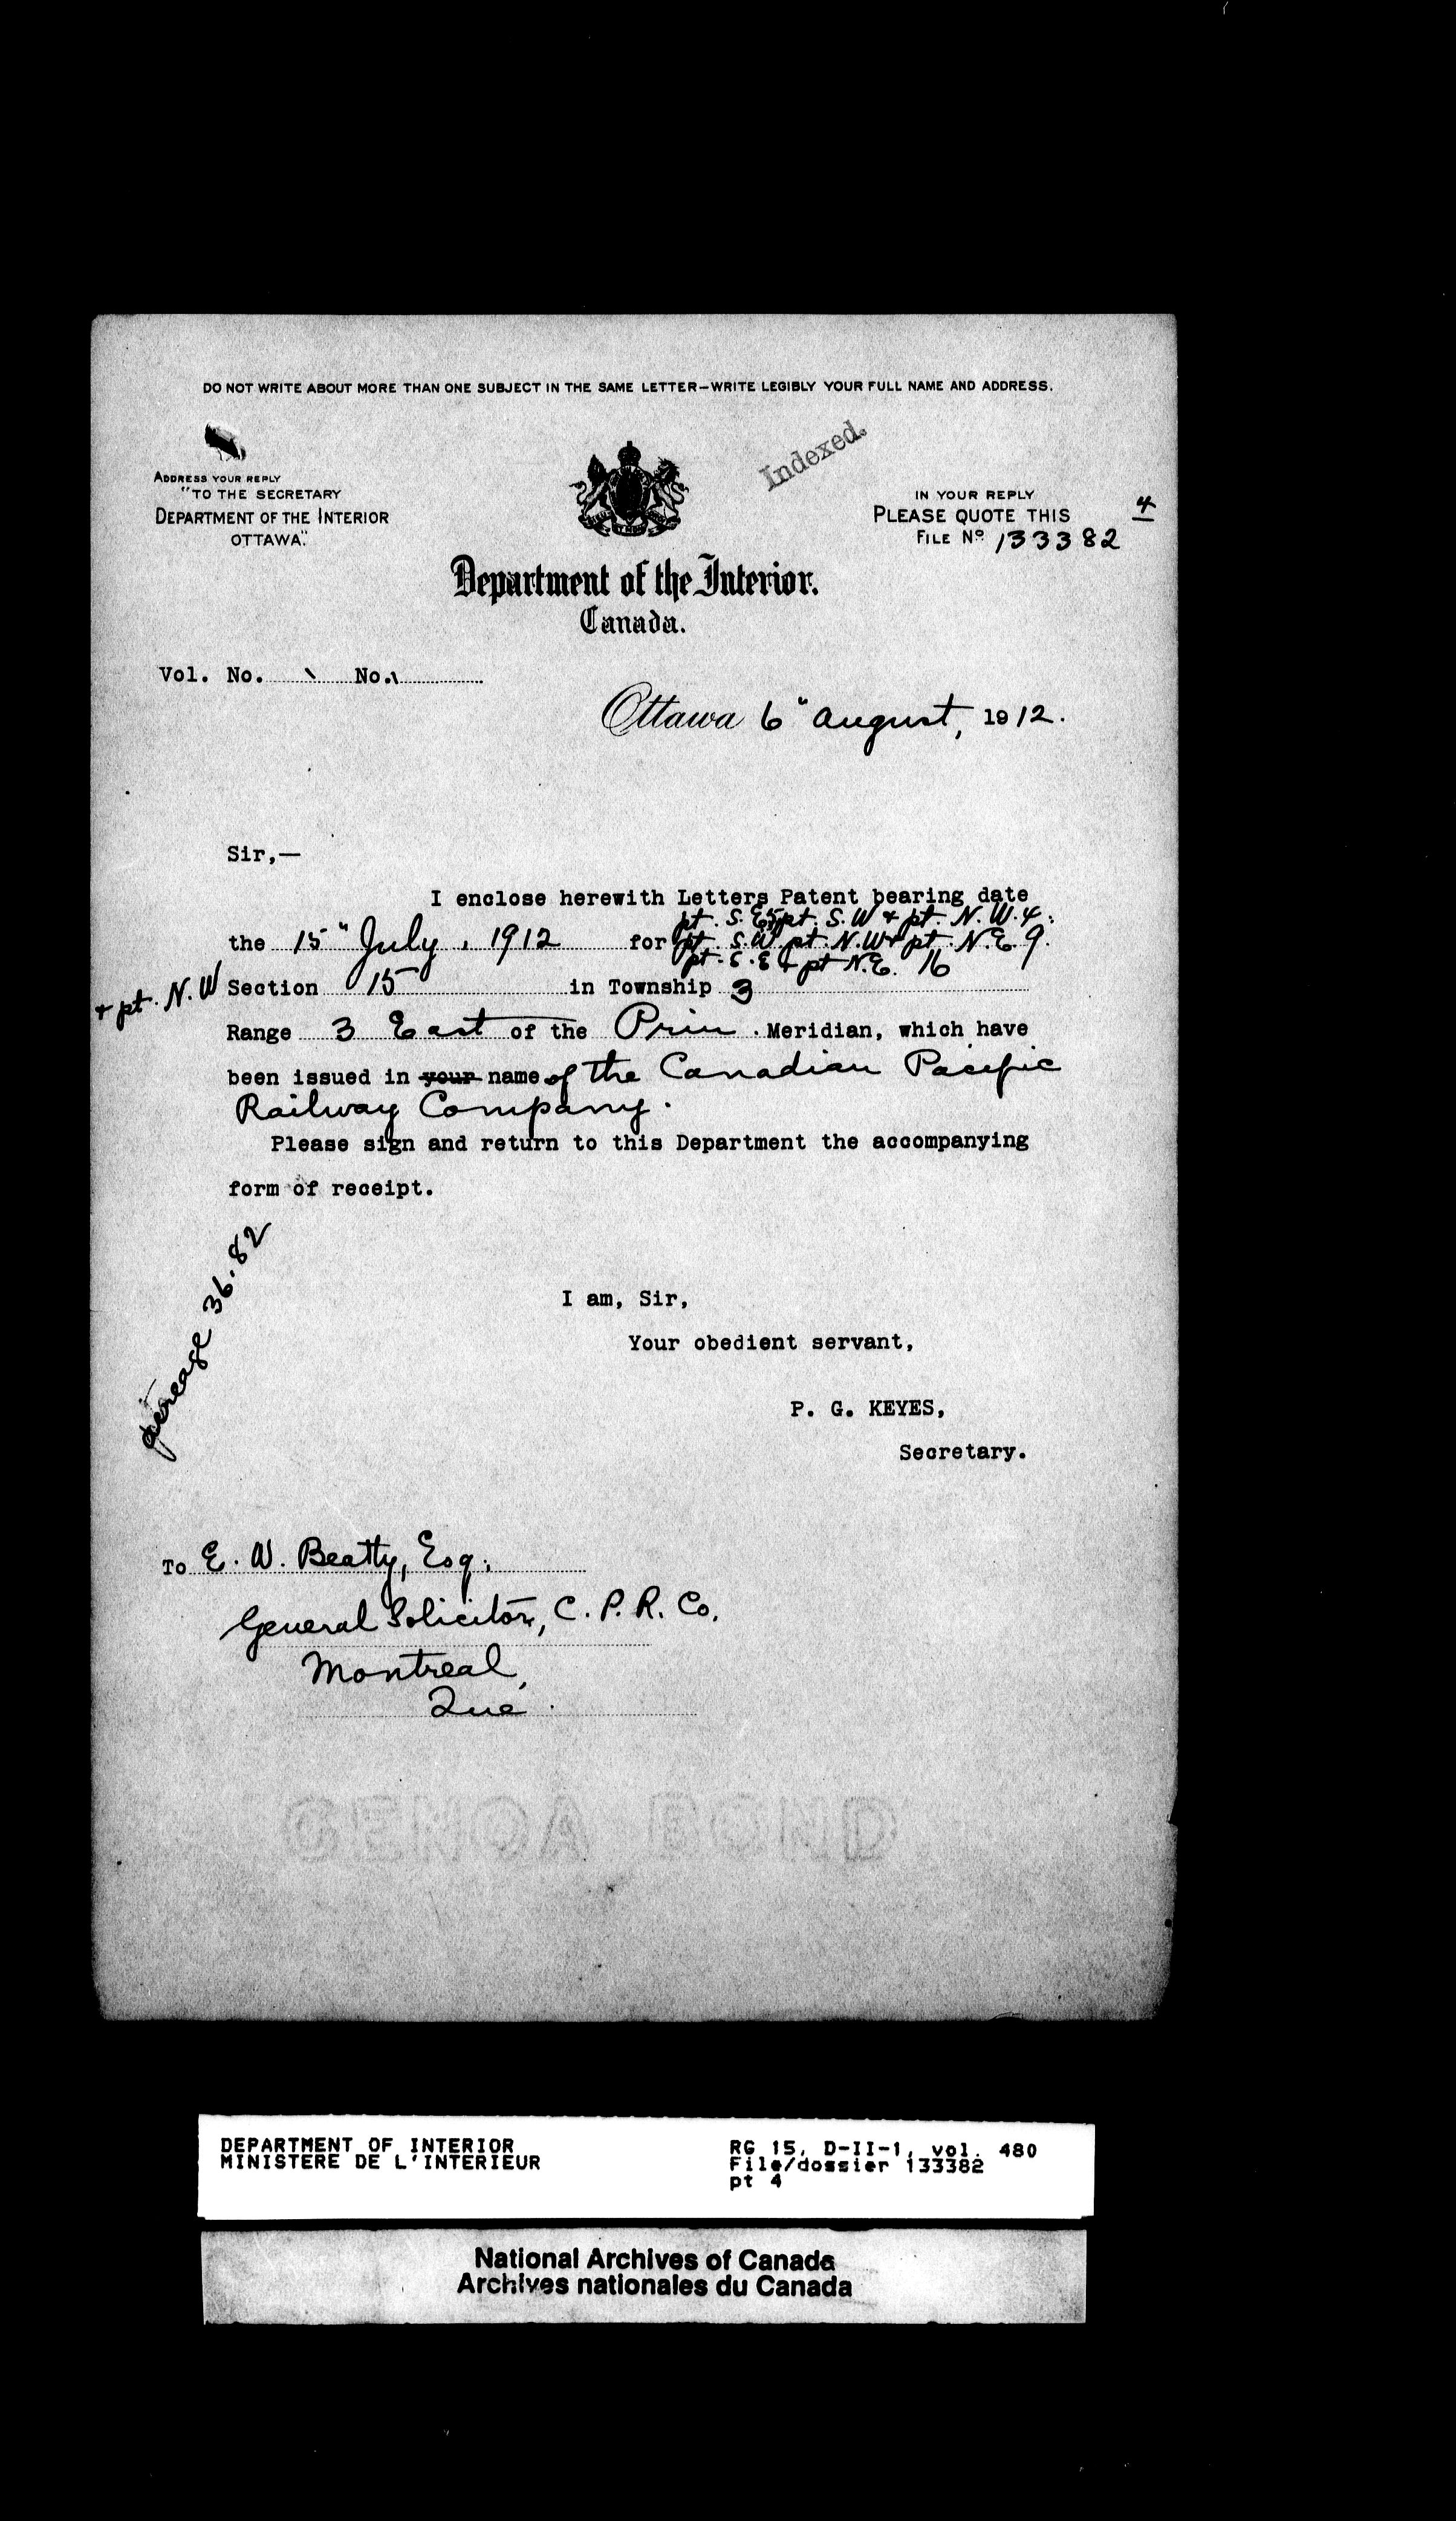 DO NOT WRITE ABOUT MORE THAN ONE SUBJECT IN THE SAME LETTER—WRITE LEGIBLY YOUR FULL NAME AND ADDRESS.
Indexed.
ADDRESS YOUR REPLY
"TO THE SECRETARY
DEPARTMENT OF THE INTERIOR
OTTAWA."
IN YOUR REPLY
PLEASE QUOTE THIS
FILE No 133382
4
Department of the Interior.
Canada.
Vol. No. No.
Ottawa 6" August, 1912.
Sir,—
I enclose herewith Letters Patent bearing date
pt. S.E. 5, pt. S.W & pt. N.W. 4.
the 15" July, 1912 for pt. S.W. pt. N.W & pt. N.E. 9.
pt. S.E & pt N.E. 16
& pt. N.W Section 15 in Township 3
Range 3 East of the Prin. Meridian, which have
been issued in your name of the Canadian Pacific
Railway Company.
Please sign and return to this Department the accompanying
form of receipt.
acreage 36.82
I am, Sir,
Your obedient servant,
P. G. KEYES,
Secretary.
To E. W. Beatty, Esq.,
General Solicitor, C. P. R. Co.
Montreal,
Que.
GENOA BOND
DEPARTMENT OF INTERIOR
MINISTERE DE L'INTERIEUR
RG 15, D-II-1, vol. 480
File/dossier 133382
pt 4
National Archives of Canada
Archives nationales du Canada